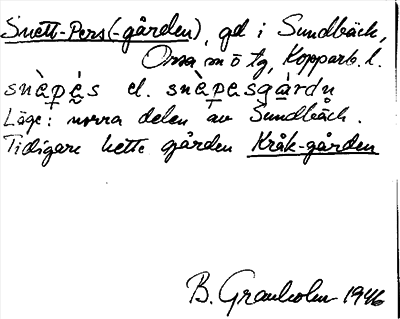 Snett-Pers(-gården), gd i Sundbäck,
Orsa sn o tg, Kopparb. l.
snὲpe̱s el. snὲpe̱sgạ̊rdn
Läge: norra delen av Sundbäck.
Tidigare hette gården Kråk-gården
B. Granholm 1946